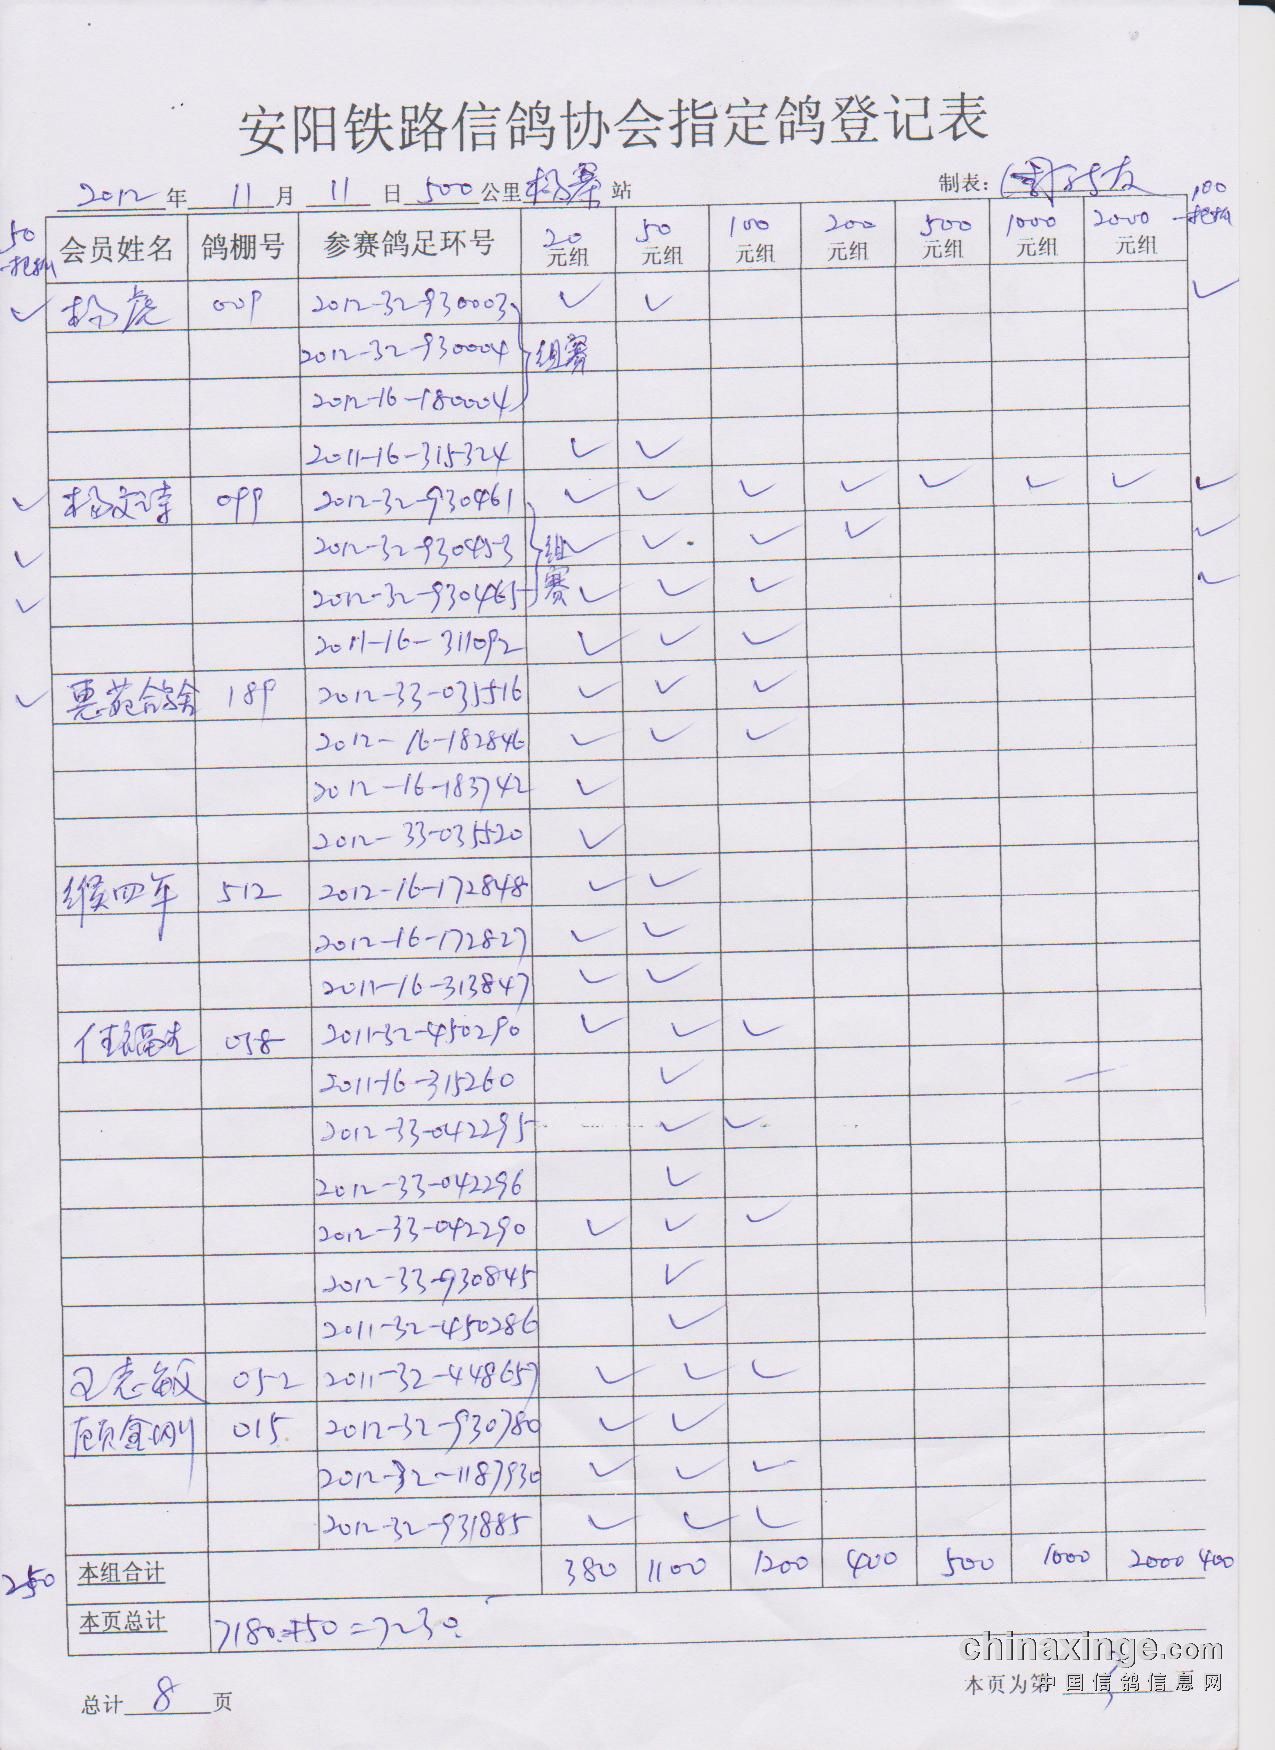 安阳铁路信鸽协会指定鸽登记表
2012年 11月 11日 500公里 杨寨站 制表:
50 100
会员姓名 鸽棚号 参赛鸽足环号 20元组 50元组 100元组 200元组 500元组 1000元组 2000元组
✓ 杨虎 009 2012-32-930003 ✓ ✓ ✓
2012-32-930004 组赛
2012-16-180004
2011-16-315324 ✓ ✓
✓ 杨文涛 099 2012-32-930461 ✓ ✓ ✓ ✓ ✓ ✓ ✓ ✓
✓ 2012-32-930453 组赛 ✓ ✓ ✓ ✓ ✓
✓ 2012-32-930465 ✓ ✓ ✓ ✓
2011-16-311092 ✓ ✓ ✓
✓ 惠苑鸽舍 189 2012-33-035516 ✓ ✓ ✓
2012-16-182846 ✓ ✓ ✓
2012-16-183742 ✓
2012-33-035520 ✓
候四年 512 2012-16-172848 ✓ ✓
2012-16-172827 ✓ ✓
2011-16-313847 ✓ ✓
任福生 058 2011-32-450290 ✓ ✓ ✓
2011-16-315260 ✓
2012-33-042295 ✓ ✓
2012-33-042296 ✓
2012-33-042290 ✓ ✓ ✓
2012-33-930845 ✓
2011-32-450286 ✓
王志敏 052 2011-32-448657 ✓ ✓ ✓
顾金刚 015 2012-32-930780 ✓ ✓
2012-32-1187930 ✓ ✓ ✓
2012-32-931885 ✓ ✓ ✓
250 本组合计 380 1100 1200 400 500 1000 2000 400
本页总计 7180+50=7230
总计 8 页 本页为第 3 页
chinaxinge.com
中国信鸽信息网